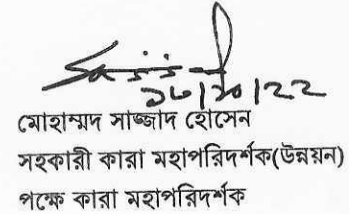 মোহাম্মদ সাজ্জাদ হোসেন
সহকারী কারা মহাপরিদর্শক(উন্নয়ন)
পক্ষে কারা মহাপরিদর্শক